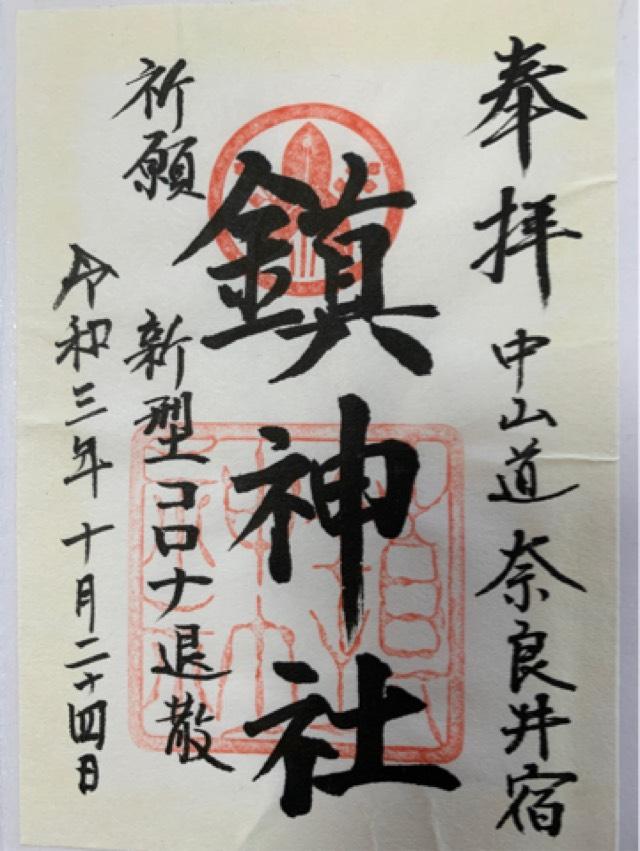 奉拝 中山道 奈良井宿
鎮神社
祈願 新型コロナ退散
令和三年十月二十四日